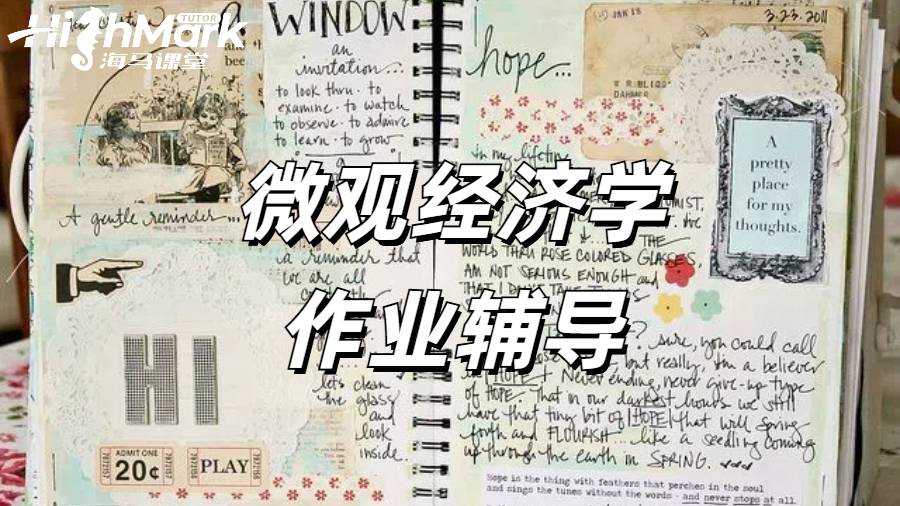 HighMark
TUTOR
海马课堂
微观经济学
作业辅导
WINDOW
an
invitation...
to look thru · to
examine · to watch
to observe · to admire
to learn · to grow
A gentle reminder...
a reminder that
we are all
HI
let's clean
the glass
and
look
inside.
ADMIT ONE
20¢
PLAY
JAN 28
3.23.2011
hope...
in my lifetime
THE
WORLD THRU ROSE COLORED GLASSES,
AM NOT SERIOUS ENOUGH and
THAT I DON'T TAKE
? sure, you could call
but really, I'm a believer
HOPE. Never ending, never give-up type
of HOPE. That in our darkest hours we still
have that tiny bit of HOPE that will spring
forth and FLOURISH... like a seedling coming
up through the earth in SPRING.
A
pretty
place
for my
thoughts.
Hope is the thing with feathers that perches in the soul
and sings the tunes without the words - and never stops at all.